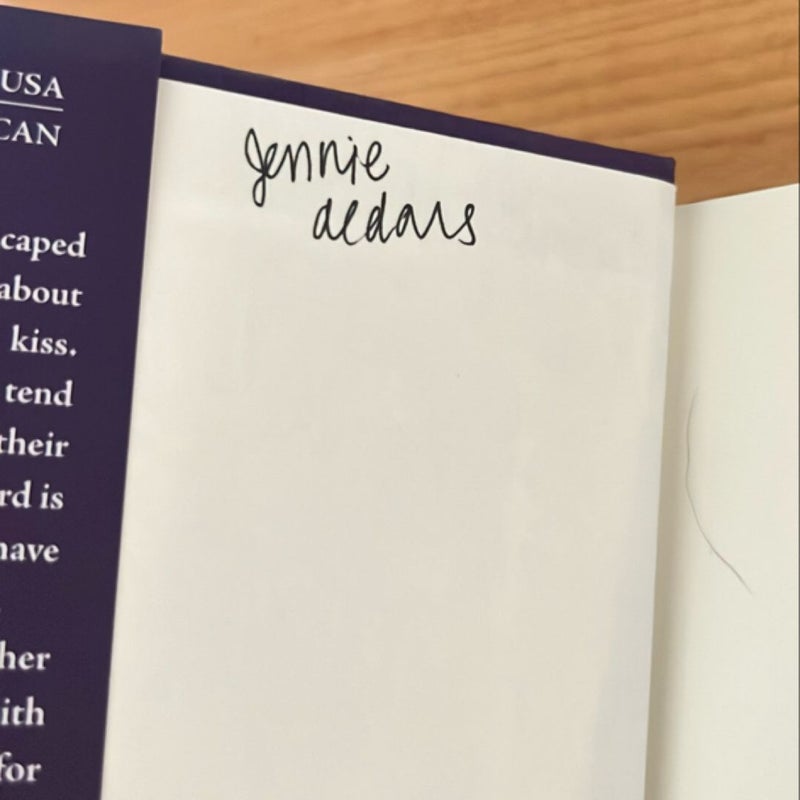 USA
CAN
caped
about
kiss.
tend
their
rd is
have
her
ith
for
Jennie